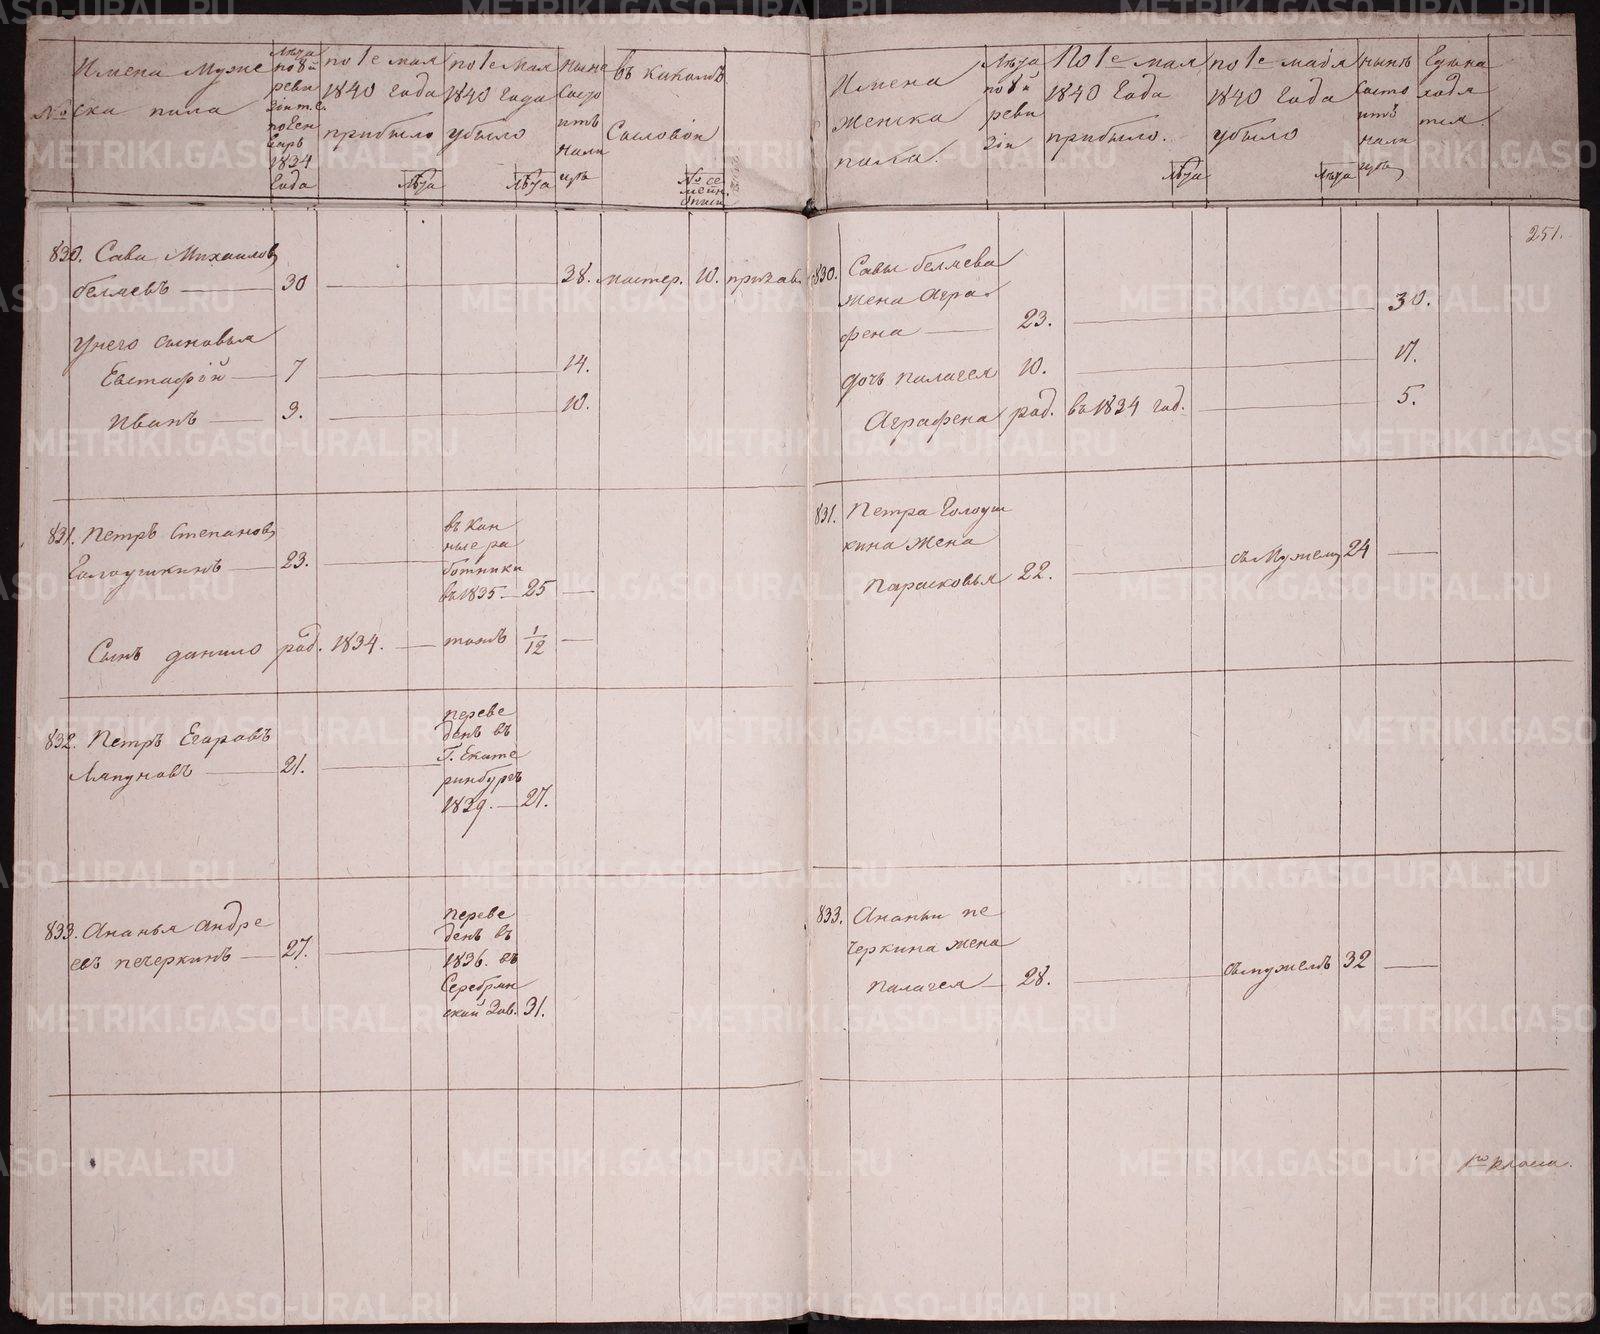 №
Имена Муже
ска пола
Лѣта
по 8й
реви
зіи т. е.
1834
Года
по 1е мая
1840 Года
прибыло
лѣта
по 1е Мая
1840 Года
убыло
лѣта
ныне
Состо
итъ
нали
цѣ
въ какомъ
Сословіи
№ се
мейн.
описи
830. Сава Михаилов
белаевъ 30 38. мастер. 10.
Унего сыновья
Евстафій 7 14.
Иванъ 3. 10.
831. Петръ Степанов
Голоушкинъ 23.
въ Кон
ные ра
ботники
въ 1835 25
Сынъ данило рад. 1834. тожъ 1/12
832. Петръ Егаровъ
Ляпуновъ 21.
переве
денъ въ
Г. Екате
ринбургъ
1839. 27.
833. Ананья Андре
евъ печеркинъ 27.
переве
денъ въ
1836. въ
Серебрян
ский Зав. 31.
Имена
Женска
пола.
Лѣта
по 8й
реви
зіи
По 1е мая
1840 Года
прибыло.
лѣта
по 1е майя
1840 Года
убыло
лѣта
нынѣ
Состо
итъ
нали
цѣ
251.
830. Савы белаева
жена Агра
фена 23. 30.
дочь палагея 10. 17.
Аграфена рад. въ 1834 год. 5.
831. Петра Голоуш
кина жена
Парасковья 22. съ Мужем 24
833. Ананьи пе
черкина жена
палагея 28. съ мужемъ 32
1го класа.
METRIKI.GASO-URAL.RU